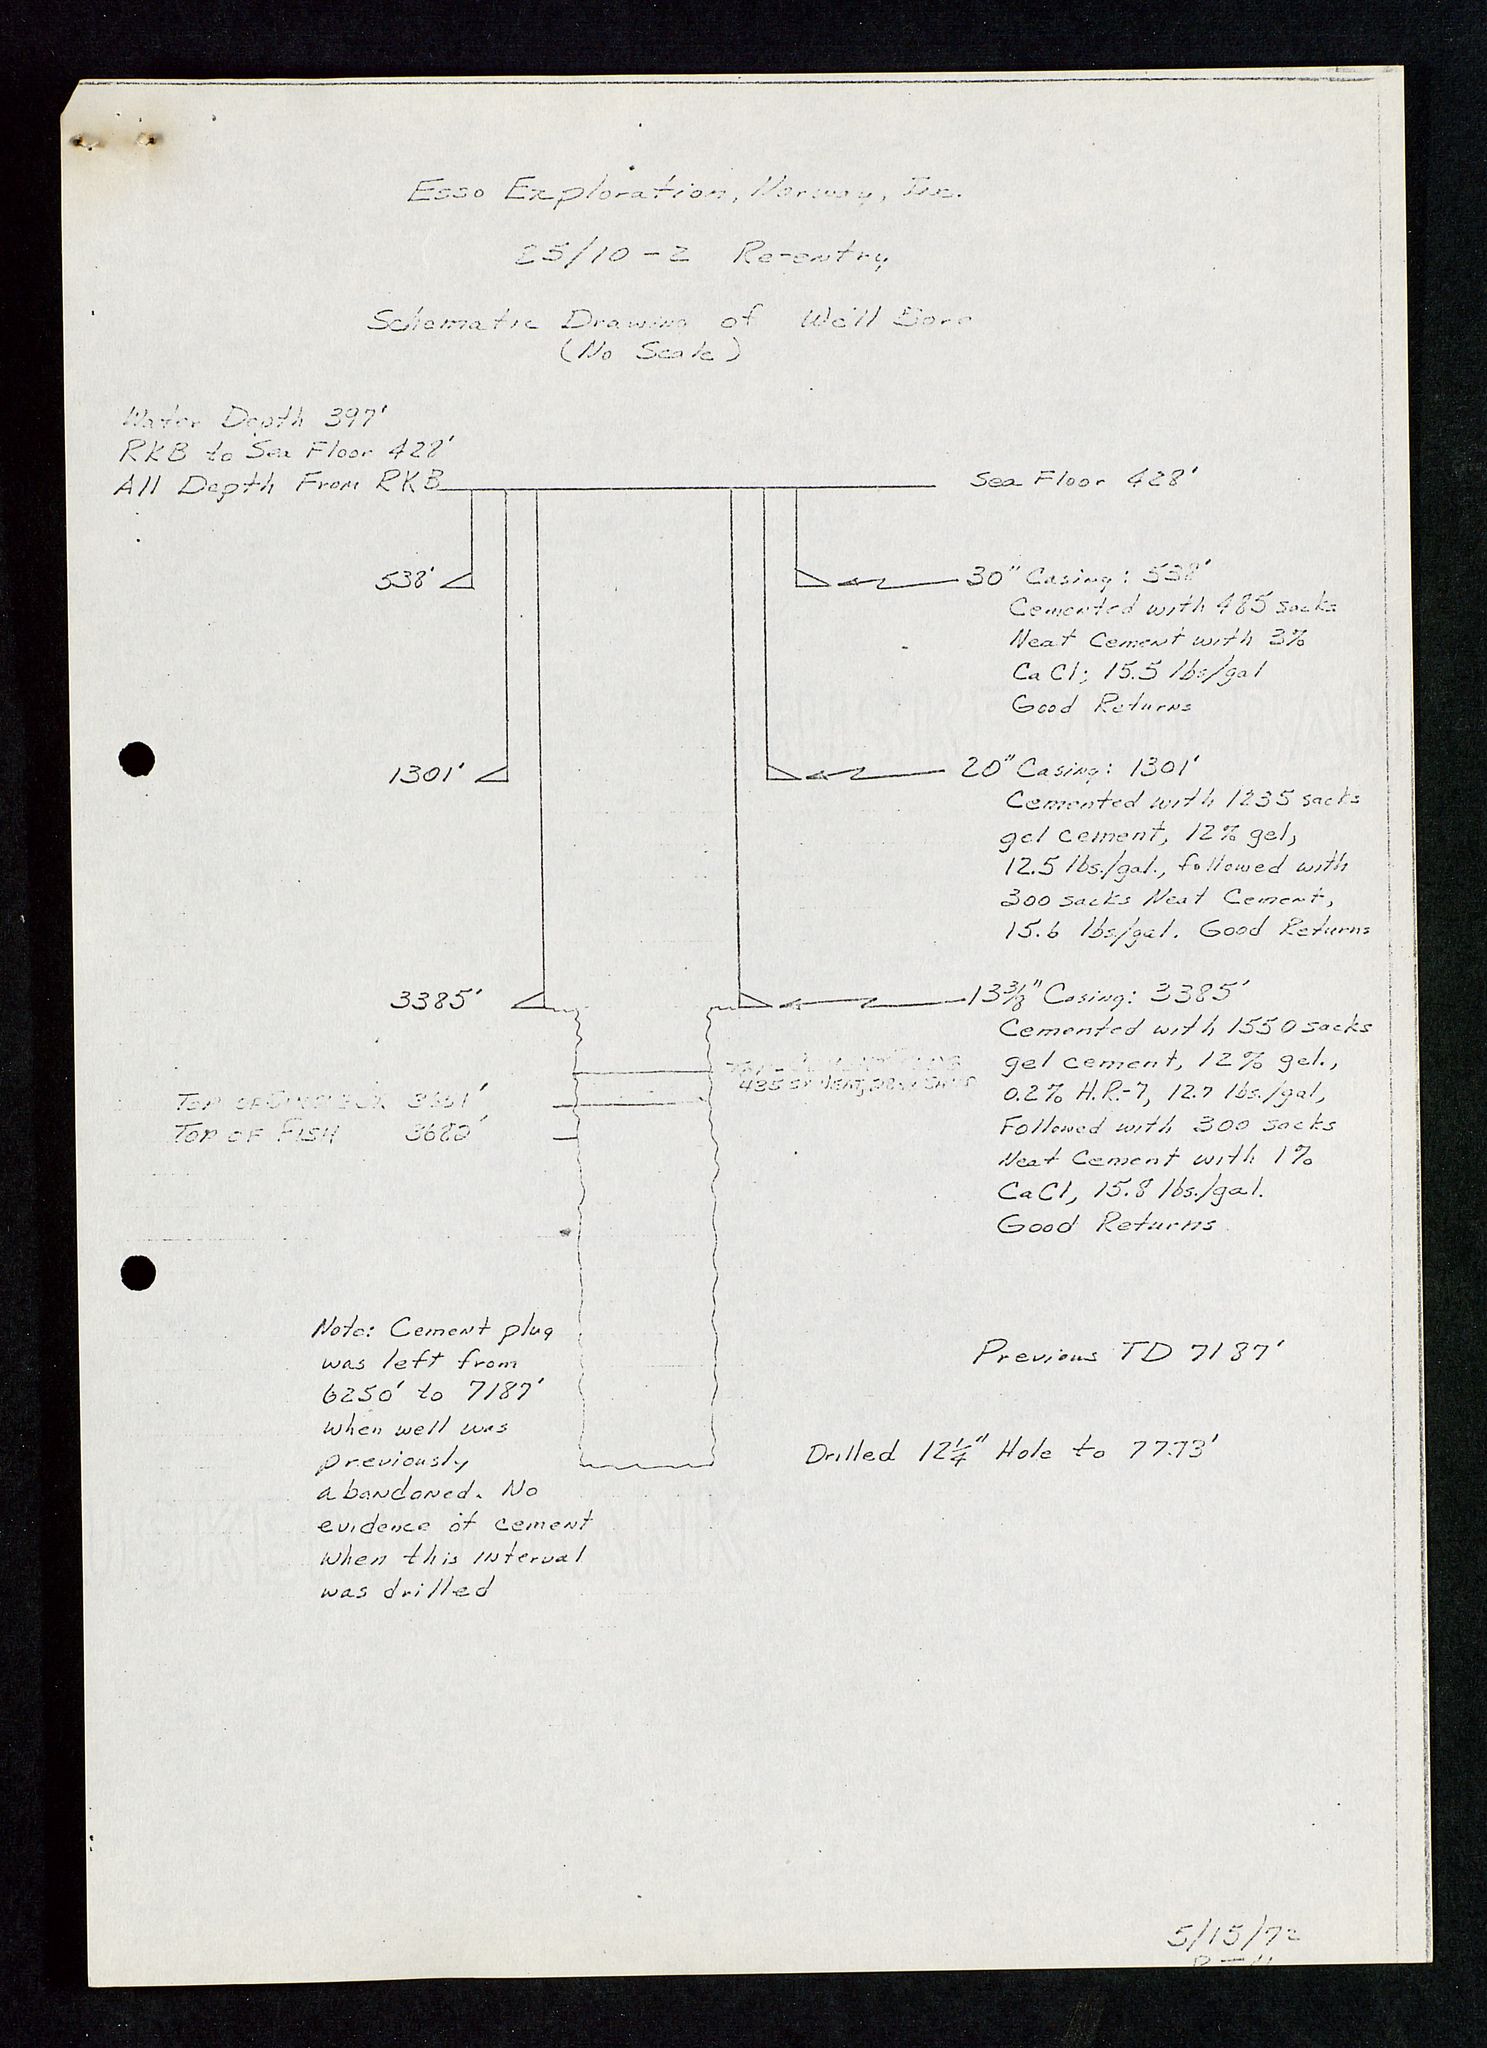 Esso Exploration, Norway, Inc.
25/10-2 Re-entry
Schematic Drawing of Well Bore
(No Scale)
Water Depth 397'
RKB to Sea Floor 428'
All Depth From RKB
Sea Floor 428'
538'
30" Casing: 538'
Cemented with 485 sacks
Neat Cement with 3%
CaCl; 15.5 lbs/gal
Good Returns
1301'
20" Casing: 1301'
Cemented with 1235 sacks
gel cement, 12% gel,
12.5 lbs./gal., followed with
300 sacks Neat Cement,
15.6 lbs/gal. Good Returns
3385'
13 3/8" Casing: 3385'
Cemented with 1550 sacks
gel cement, 12% gel.,
0.2% H.R.-7, 12.7 lbs./gal,
Followed with 300 sacks
Neat Cement with 1%
CaCl, 15.8 lbs./gal.
Good Returns
435 sx Neat,
Top of
Top of Fish 3682'
Note: Cement plug
was left from
6250' to 7187'
when well was
previously
abandoned. No
evidence of cement
when this interval
was drilled
Previous TD 7187'
Drilled 12 1/4" Hole to 7773'
5/15/72